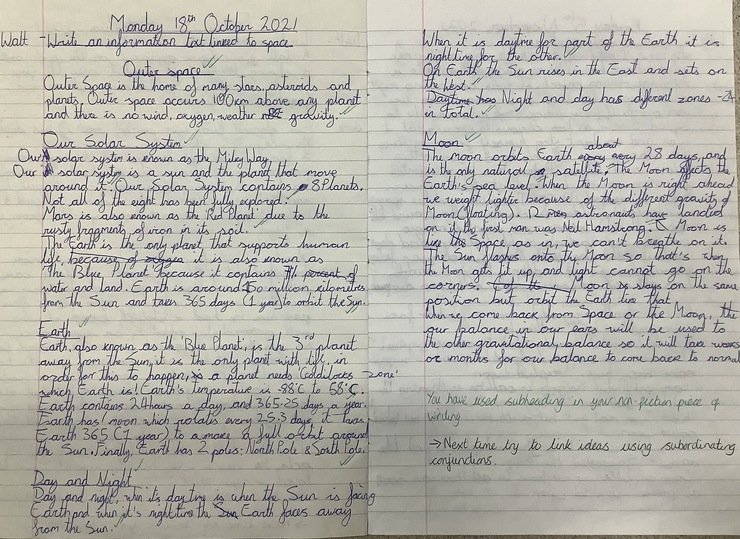 Monday 18th October 2021
Walt - Write an information text linked to space
Outer space
Outer Space is the home of many stars, asteroids and
planets. Outer space occurs 100km above any planet
and there is no wind, oxygen, weather gravity.
Our Solar System
Our solar system is known as the Milky Way
Our solar system is a sun and the planet that move
around it. Our Solar System contains 8 Planets.
Not all of the eight has been fully explored.
Mars is also known as the 'Red Planet' due to the
rusty fragments of iron in its soil.
The Earth is the only planet that supports human
life, because of oxygen it is also known as
The 'Blue Planet' because it contains 71 percent of
water and land. Earth is around 150 million kilometres
from the Sun and takes 365 days (1 year) to orbit the Sun.
Earth
Earth, also known as the 'Blue Planet', is the 3rd planet
away from the Sun, it is the only planet with life, in
order for this to happen, a planet needs 'Goldilocks zone'
which Earth is! Earth's temperature is -88°C to 58°C.
Earth contains 24 hours a day, and 365.25 days a year.
Earth has 1 moon which rotates every 25.3 days, it takes
Earth 365 (1 year) to a make a full orbit around
the Sun. Finally, Earth has 2 poles: North Pole & South Pole.
Day and Night
Day and night, when it's day time is when the Sun is facing
Earth and when it's night time the Sun Earth faces away
from the Sun.
When it is daytime for part of the Earth it is
night time for the other.
On Earth the Sun rises in the East and sets on
the West.
Daytime has Night and day has different zones -24
in total.
Moon
The moon orbits Earth every about every 28 days, and
is the only natural satellite. The Moon affects the
Earth's sea level. When the Moon is right ahead
we weight lighter because of the different gravity of
Moon (floating). 12 men astronauts have landed
on it, the first man was Neil Hamstrong. Moon is
like the Space, as in, we can't breathe on it.
The Sun flashes onto the Moon so that's when
the Moon gets lit up, and light cannot go on the
corners. Moon is stays on the same
position but orbit the Earth like that
When we come back from Space or the Moon, the
our balance in our ears will be used to
the other gravitational balance so it will take weeks
or months for our balance to come back to normal
You have used subheading in your non-fiction piece of
writing
→ Next time try to link ideas using subordinating
conjunctions.